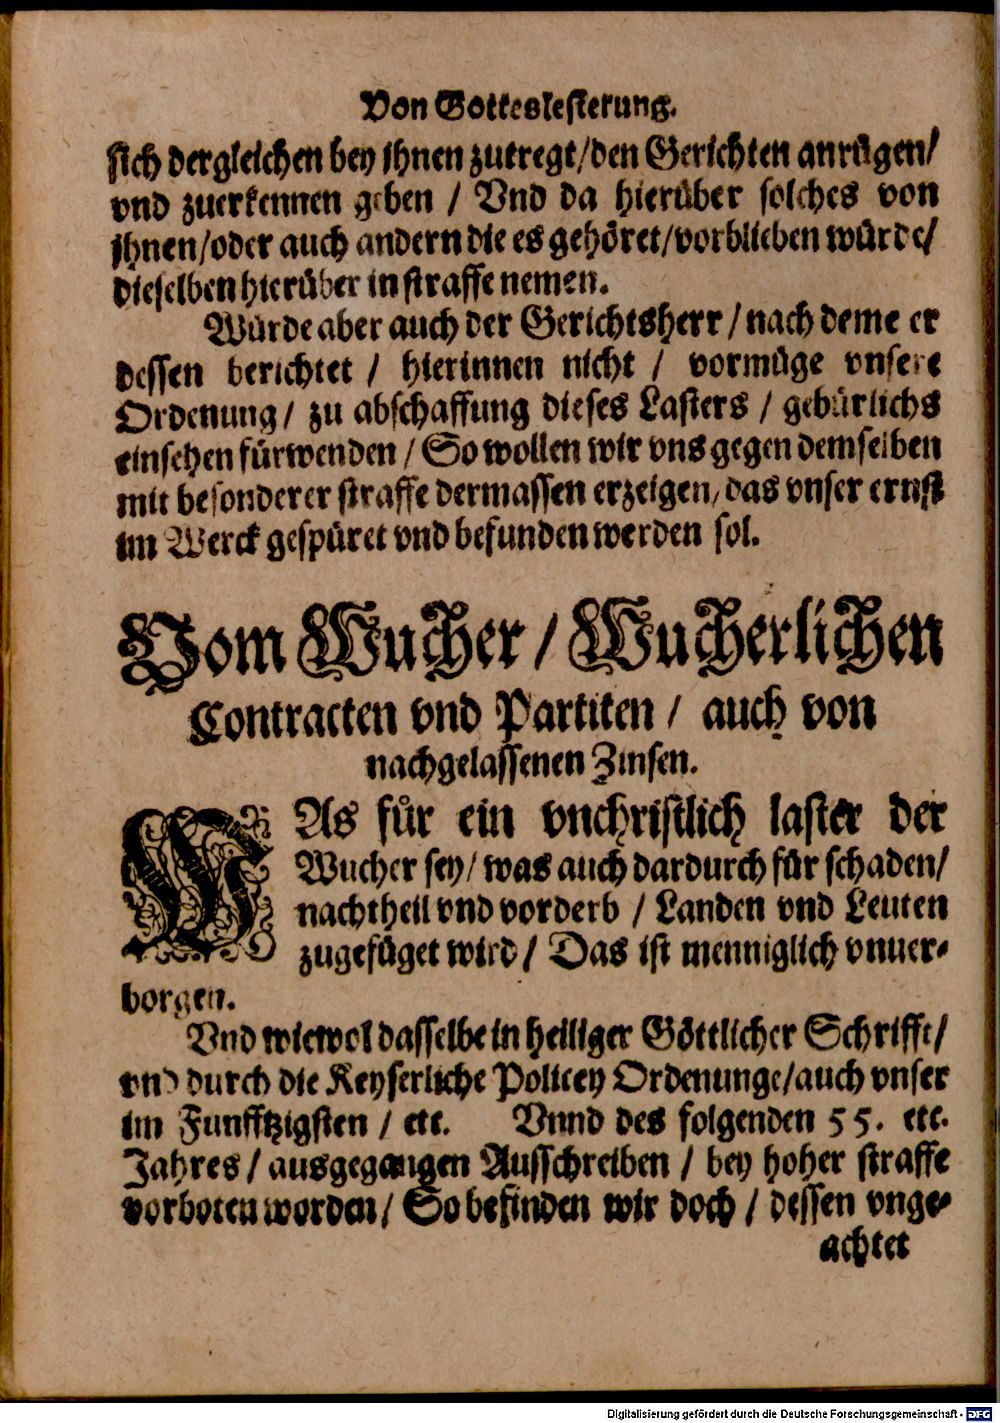 Von Gotteslesterung.
sich dergleichen bey jhnen zutregt/den Gerichten anrügen/
vnd zuerkennen geben / Vnd da hierüber solches von
jhnen/oder auch andern die es gehöret/vorblieben würde/
dieselben hierüber in straffe nemen.
Würde aber auch der Gerichtsherr / nach deme er
dessen berichtet / hierinnen nicht / vormüge vnsere
Ordenung / zu abschaffung dieses Lasters / gebürlichs
einsehen fürwenden / So wollen wir vns gegen demselben
mit besonderer straffe dermassen erzeigen, das vnser ernst
im Werck gespüret vnd befunden werden sol.
Vom Wucher / Wucherlichen
Contracten vnd Partiten / auch von
nachgelassenen Zinsen.
WAs für ein vnchristlich laster der
Wucher sey/ was auch dardurch für schaden/
nachtheil vnd vorderb / Landen vnd Leuten
zugefüget wird / Das ist menniglich vnuer-
borgen.
Vnd wiewol dasselbe in heiliger Göttlicher Schrifft/
vnd durch die Keyserliche Policey Ordenunge/auch vnser
im Funfftzigsten / etc. Vnnd des folgenden 55. etc.
Jahres / ausgegangen Ausschreiben / bey hoher straffe
vorboten worden / So befinden wir doch / dessen vnge-
achtet
Digitalisierung gefördert durch die Deutsche Forschungsgemeinschaft - DFG